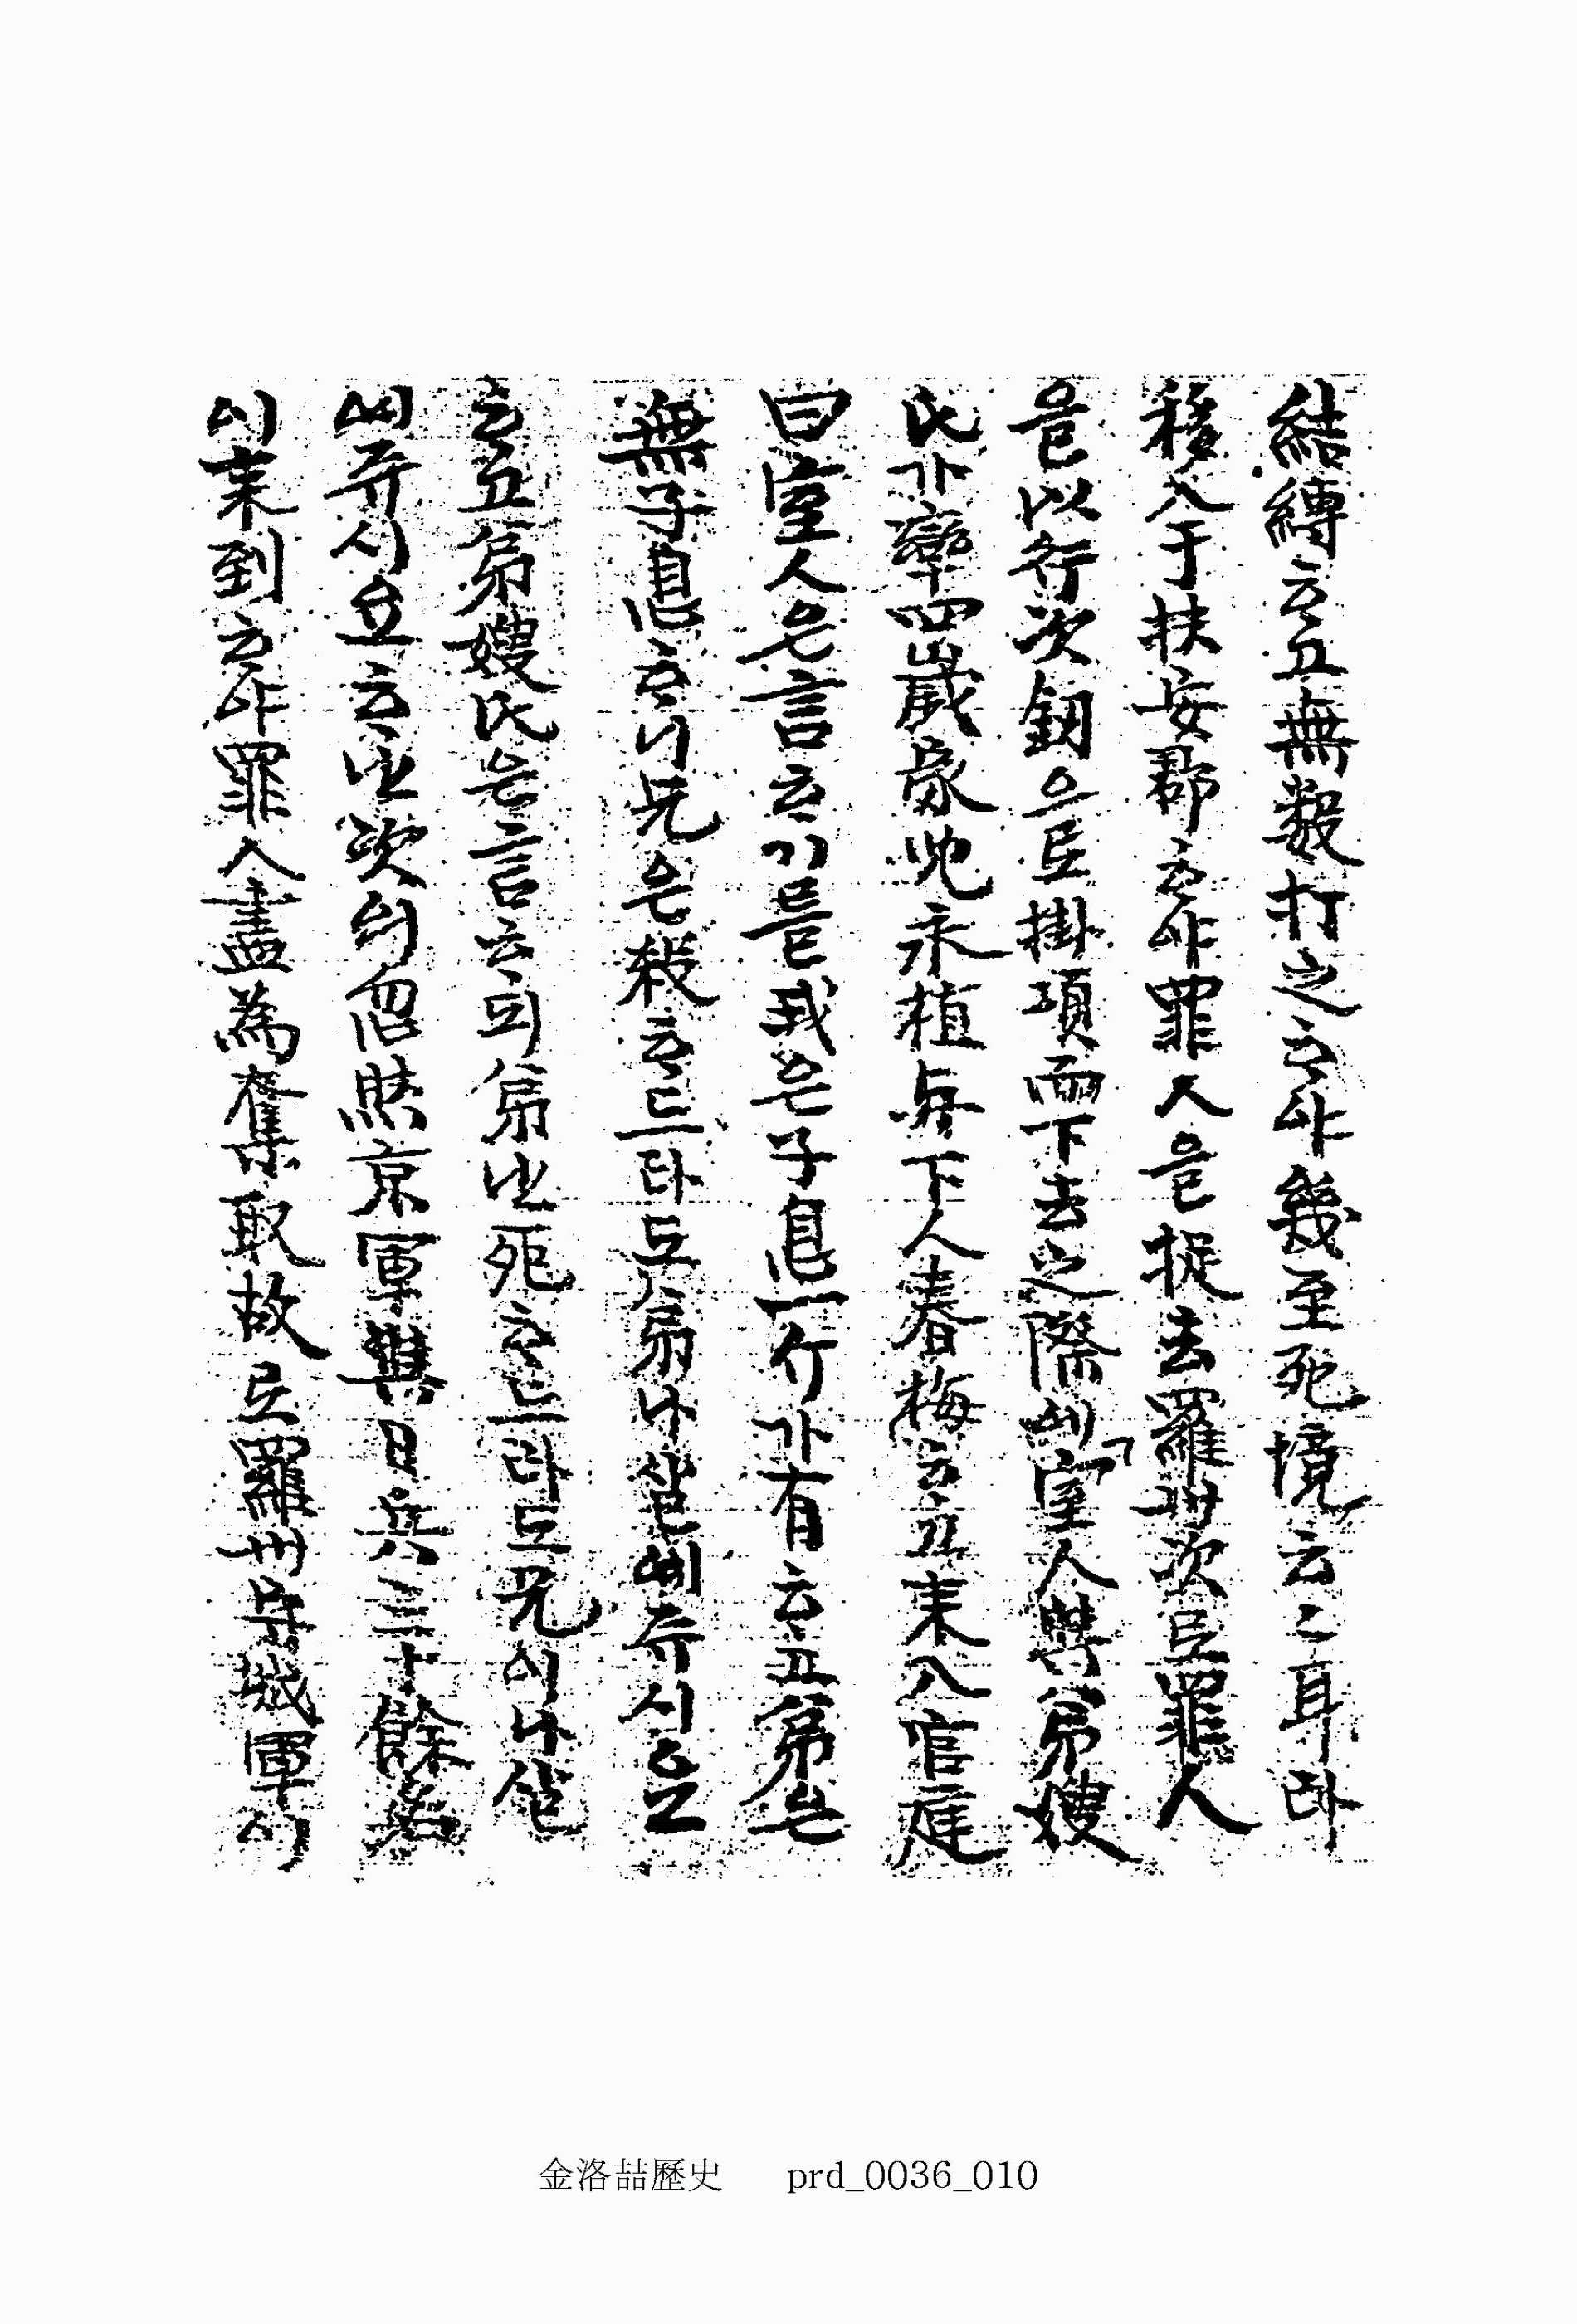 結縛ᄒᆞ고無数打之ᄒᆞ야幾至死境云〻耳라
移入于扶安郡ᄒᆞ야罪人을捉去羅州次로罪人
을以行次釖으로掛項而下去之際에室人與弟嫂
氏가率四歲家児永植与下人春梅ᄒᆞ고来入官庭
曰室人은言ᄒᆞ기를我은子息一介가有ᄒᆞ고弟은
無子息ᄒᆞ니兄은殺ᄒᆞ드라도弟나살예쥬시
ᄒᆞ고弟嫂氏는言ᄒᆞ되弟난死ᄒᆞ드라도兄이나살
예쥬시요ᄒᆞ난次의忽然京軍與日兵三十餘名
이来到ᄒᆞ야罪人盡為奪取故로羅州兵城軍이
金洛喆歷史 prd_0036_010